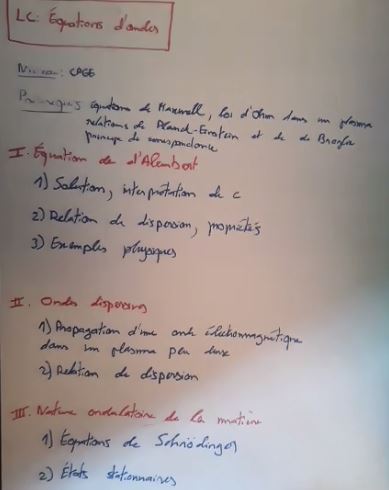 LC: Équations d'ondes
Niveau: CPGE
Prérequis équations de Maxwell, loi d'Ohm dans un plasma
relations de Planck-Einstein et de de Broglie
principe de correspondance
I. Équation de d'Alembert
1) Solution, interprétation de c
2) Relation de dispersion, propriétés
3) Exemples physiques
II. Ondes dispersives
1) Propagation d'une onde électromagnétique
dans un plasma peu dense
2) Relation de dispersion
III. Nature ondulatoire de la matière
1) Équations de Schrödinger
2) États stationnaires